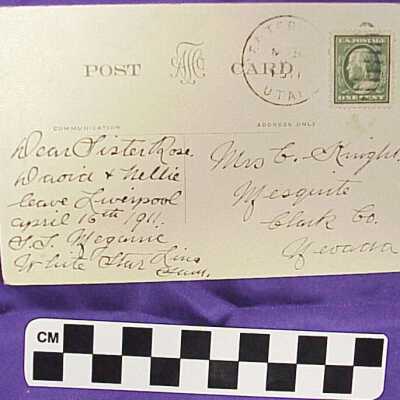 POST CARD
U.S. POSTAGE
ONE CENT
UTAH
COMMUNICATION
ADDRESS ONLY
Dear Sister Rose.
David & Nellie
leave Liverpool
april 15th 1911.
S.S. Megantic
White Star Line
Sam.
Mrs C. Knight
Mesquite
Clark Co.
Nevada
CM